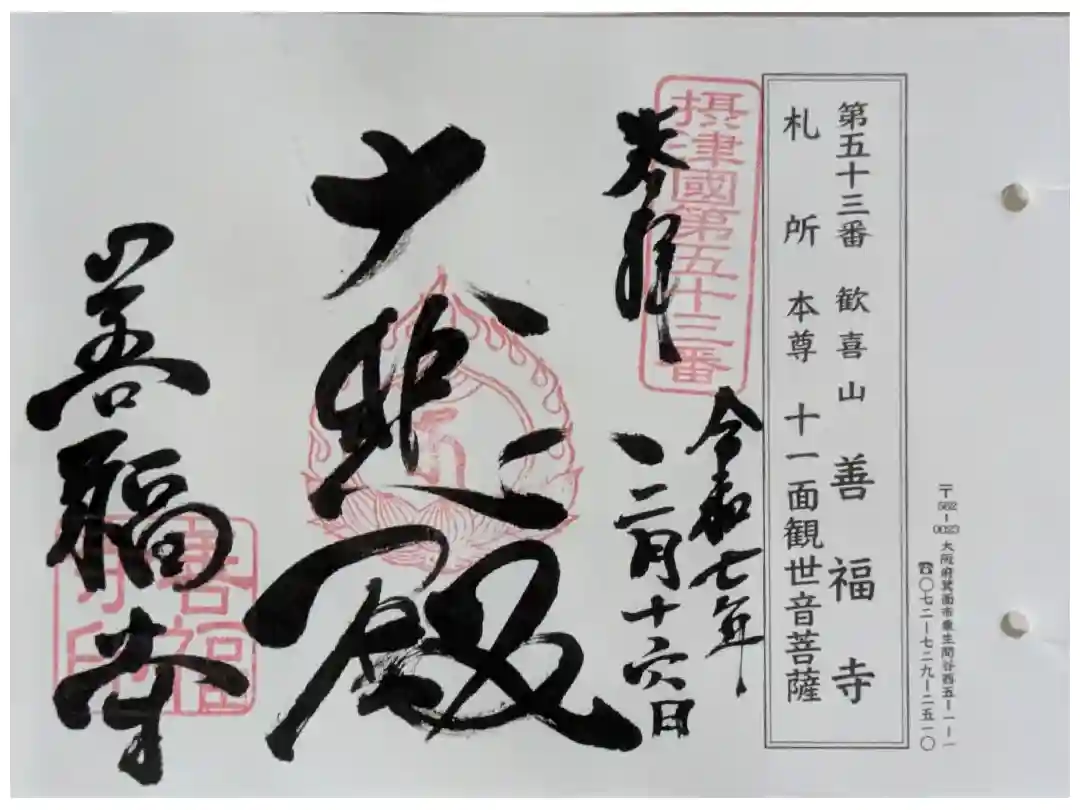 〒562-0023 大阪府箕面市粟生間谷西五-一-一
☎〇七二-七二九-二五一〇
第五十三番 歓喜山 善福寺
札所本尊 十一面観世音菩薩
摂津國第五十三番
奉拝
令和七年
二月十六日
大悲殿
善福寺
善福
寺印